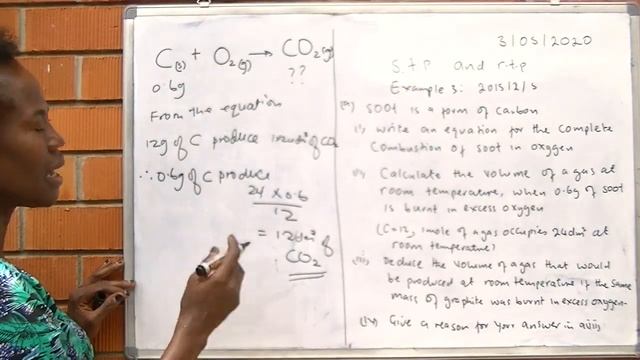 C(s) + O2(g) → CO2(g)
0.6g
??
From the equation
12g of C produce of CO2
∴ 0.6g of C produce
24 x 0.6
12
= 12dm³ of
CO2
3/05/2020
S.t.p and r.t.p
Example 3: 2015/2/5
(a) SOOT is a form of carbon
i) Write an equation for the complete
Combustion of soot in oxygen
Calculate the volume of a gas at
room temperature, when 0.6g of soot
is burnt in excess oxygen
(C=12, 1mole of a gas occupies 24dm³ at
room temperature)
(iii) Deduce the volume of a gas that would
be produced at room temperature if the same
mass of graphite was burnt in excess oxygen
(iv) Give a reason for your answer in aiii)